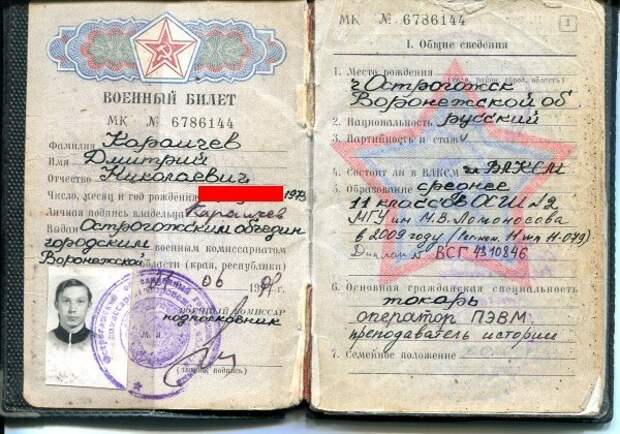 ВОЕННЫЙ БИЛЕТ
МК № 6786144
Фамилия Караичев
Имя Дмитрий
Отчество Николаевич
Число, месяц и год рождения 1973
Личная подпись владельца Караичев
Выдан Острогожским объедин
городским военным комиссариатом
Воронежской области (края, республики)
06 19
ВОЕННЫЙ КОМИССАР
подполковник
(звание, подпись)
МК № 6786144 1
I. Общие сведения
1. Место рождения
г Острогожск
Воронежской об
2. Национальность русский
3. Партийность и стаж
4. Состоит ли в ВЛКСМ чл ВЛКСМ
5. Образование среднее
11 классов ОСШ №2
МГУ им М.В. Ломоносова
в 2009 году
Диплом № ВСГ 4310846
6. Основная гражданская специальность
токарь
оператор ПЭВМ
преподаватель истории
7. Семейное положение